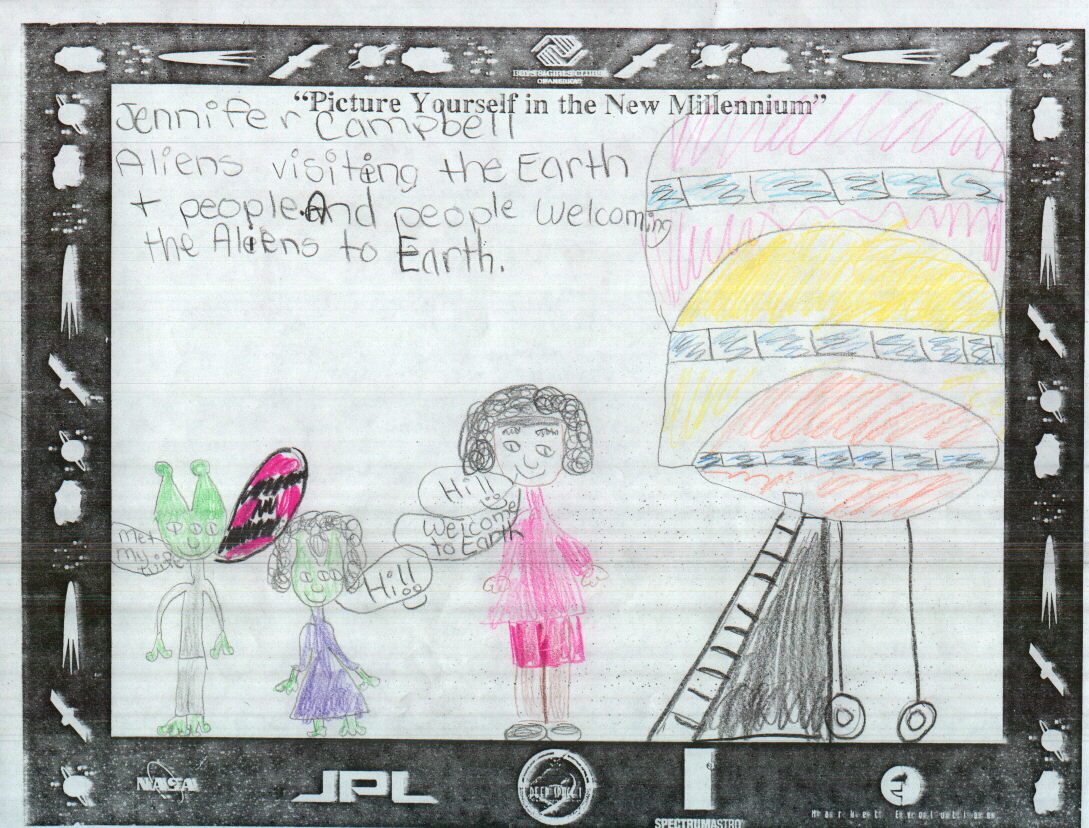 BOYS & GIRLS CLUBS
OF AMERICA
"Picture Yourself in the New Millennium"
Jennifer Campbell
Aliens visiting the Earth
+ people. And people Welcoming
the Aliens to Earth.
Hi!!
Welcome
to Earth
Met
my
Hi!!
NASA
JPL
DEEP SPACE 1
SPECTRUMASTRO